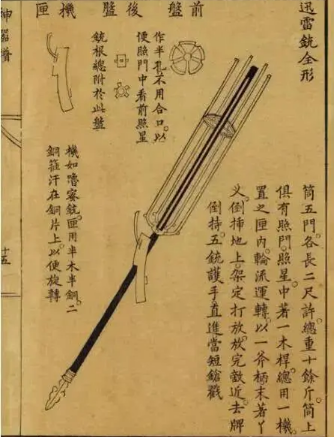 迅雷銃全形
前盤
後盤
機匣
作半孔不用合口以
便照門中看前照星
銃根總附於此盤
筒五門各長二尺許總重十餘斤筒上
俱有照門照星中著一木桿總用一機
置之匣內輪流運轉以一斧柄末著丫
倒插地上架定打放放完敵近去牌
倒持五銃護手直進當短鎗戳
機如嚕蜜銃匣用半木半銅二
銅箍汗在銅片上以便旋轉
神器譜
十五